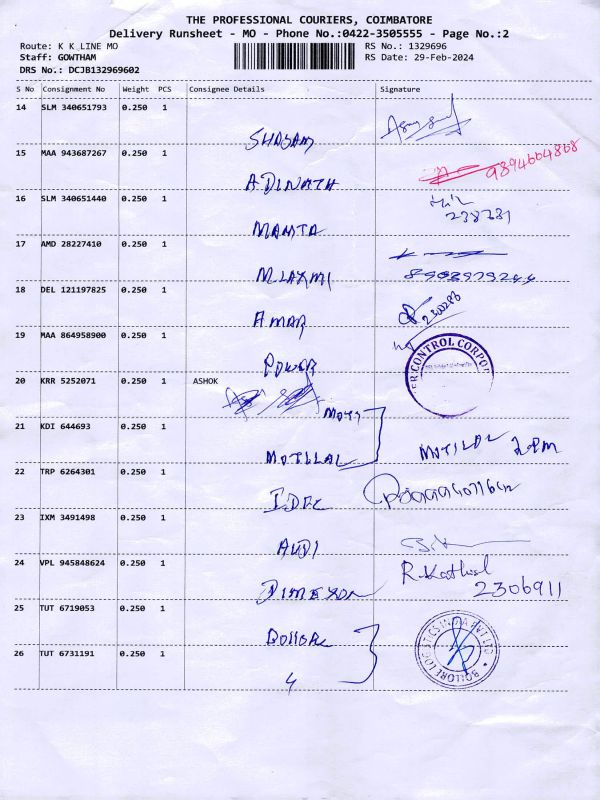 THE PROFESSIONAL COURIERS, COIMBATORE
Delivery Runsheet - MO - Phone No.:0422-3505555 - Page No.:2
Route: K K_LINE MO RS No.: 1329696
Staff: GOWTHAM RS Date: 29-Feb-2024
DRS No.: DCJB132969602
S No Consignment No Weight PCS Consignee Details Signature
14 SLM 340651793 0.250 1
15 MAA 943687267 0.250 1
9894664868
ADINATH
16 SLM 340651440 0.250 1
238731
MAMTA
17 AMD 28227410 0.250 1
MLAXMI
18 DEL 121197825 0.250 1
2300286
AMAR
19 MAA 864958900 0.250 1
POWER
ER CONTROL CORPOR
20 KRR 5252071 0.250 1 ASHOK
MOTI
21 KDI 644693 0.250 1
MOTILAL MOTILAL 2PM
22 TRP 6264301 0.250 1
IDEC
23 IXM 3491498 0.250 1
AUDI
24 VPL 945848624 0.250 1
R.Kathal
2306911
25 TUT 6719053 0.250 1
BOLLORE LOGISTICS INDIA PVT LTD
26 TUT 6731191 0.250 1
4